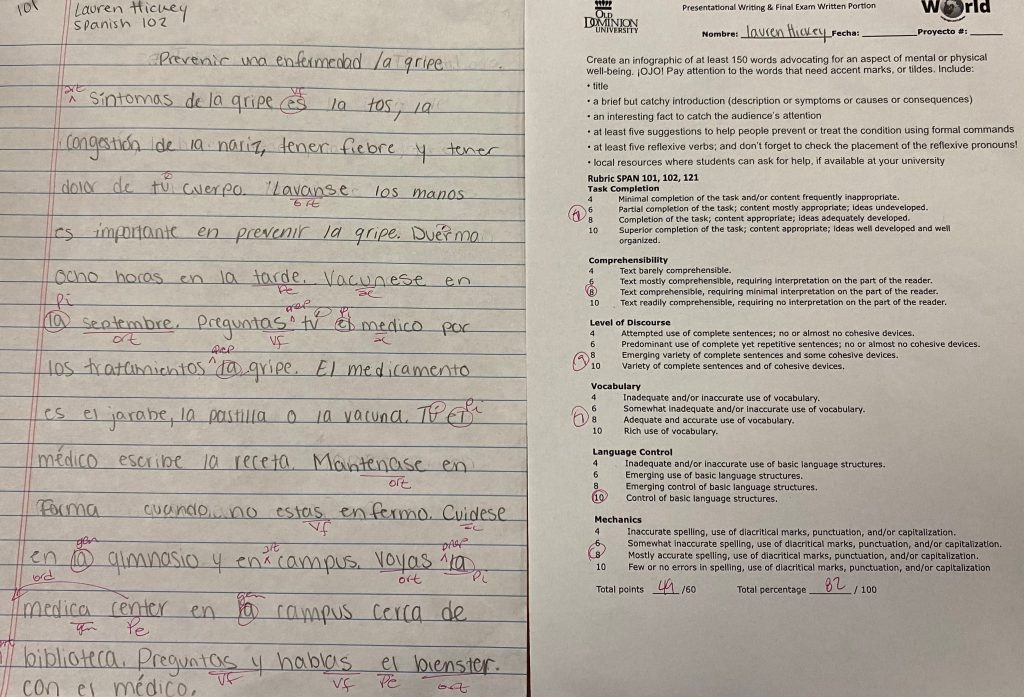 101 Lauren Hickey
Spanish 102
Prevenir una enfermedad la gripe
art
^ Síntomas de la gripe es la tos, la
vf
congestión de la nariz, tener fiebre y tener
dolor de tú cuerpo. ¡Lavanse los manos
ort
es importante en prevenir la gripe. Duerma
ocho horas en la tarde. Vacunese en
pe ac
Pi
la septembre. Preguntas ^ tú el medico por
ort vf prep Pi ac
los tratamientos ^ la gripe. El medicamento
prep
es el jarabe, la pastilla o la vacuna. Tú el
Pi
médico escribe la receta. Mantenase en
ort
forma cuando no estas enfermo. Cuidese
vf ac
en la gimnasio y en ^ campus. Voyas ^ la
gen art ort prep Pi
ord
medica center en la campus cerca de
gn Pe gen
biblioteca. Preguntas y hablas el bienster.
vf vf Pe ort
con el médico.
OLD
DOMINION
UNIVERSITY
Presentational Writing & Final Exam Written Portion
World
Nombre: Lauren Hickey Fecha: ________ Proyecto #: ____
Create an infographic of at least 150 words advocating for an aspect of mental or physical
well-being. ¡OJO! Pay attention to the words that need accent marks, or tildes. Include:
• title
• a brief but catchy introduction (description or symptoms or causes or consequences)
• an interesting fact to catch the audience's attention
• at least five suggestions to help people prevent or treat the condition using formal commands
• at least five reflexive verbs; and don't forget to check the placement of the reflexive pronouns!
• local resources where students can ask for help, if available at your university
Rubric SPAN 101, 102, 121
Task Completion
4 Minimal completion of the task and/or content frequently inappropriate.
6 Partial completion of the task; content mostly appropriate; ideas undeveloped.
8 Completion of the task; content appropriate; ideas adequately developed.
10 Superior completion of the task; content appropriate; ideas well developed and well
organized.
Comprehensibility
4 Text barely comprehensible.
6 Text mostly comprehensible, requiring interpretation on the part of the reader.
8 Text comprehensible, requiring minimal interpretation on the part of the reader.
10 Text readily comprehensible, requiring no interpretation on the part of the reader.
Level of Discourse
4 Attempted use of complete sentences; no or almost no cohesive devices.
6 Predominant use of complete yet repetitive sentences; no or almost no cohesive devices.
9 8 Emerging variety of complete sentences and some cohesive devices.
10 Variety of complete sentences and of cohesive devices.
Vocabulary
4 Inadequate and/or inaccurate use of vocabulary.
6 Somewhat inadequate and/or inaccurate use of vocabulary.
7 8 Adequate and accurate use of vocabulary.
10 Rich use of vocabulary.
Language Control
4 Inadequate and/or inaccurate use of basic language structures.
6 Emerging use of basic language structures.
8 Emerging control of basic language structures.
10 Control of basic language structures.
Mechanics
4 Inaccurate spelling, use of diacritical marks, punctuation, and/or capitalization.
6 Somewhat inaccurate spelling, use of diacritical marks, punctuation, and/or capitalization.
8 Mostly accurate spelling, use of diacritical marks, punctuation, and/or capitalization.
10 Few or no errors in spelling, use of diacritical marks, punctuation, and/or capitalization
Total points 49 /60 Total percentage 82 / 100